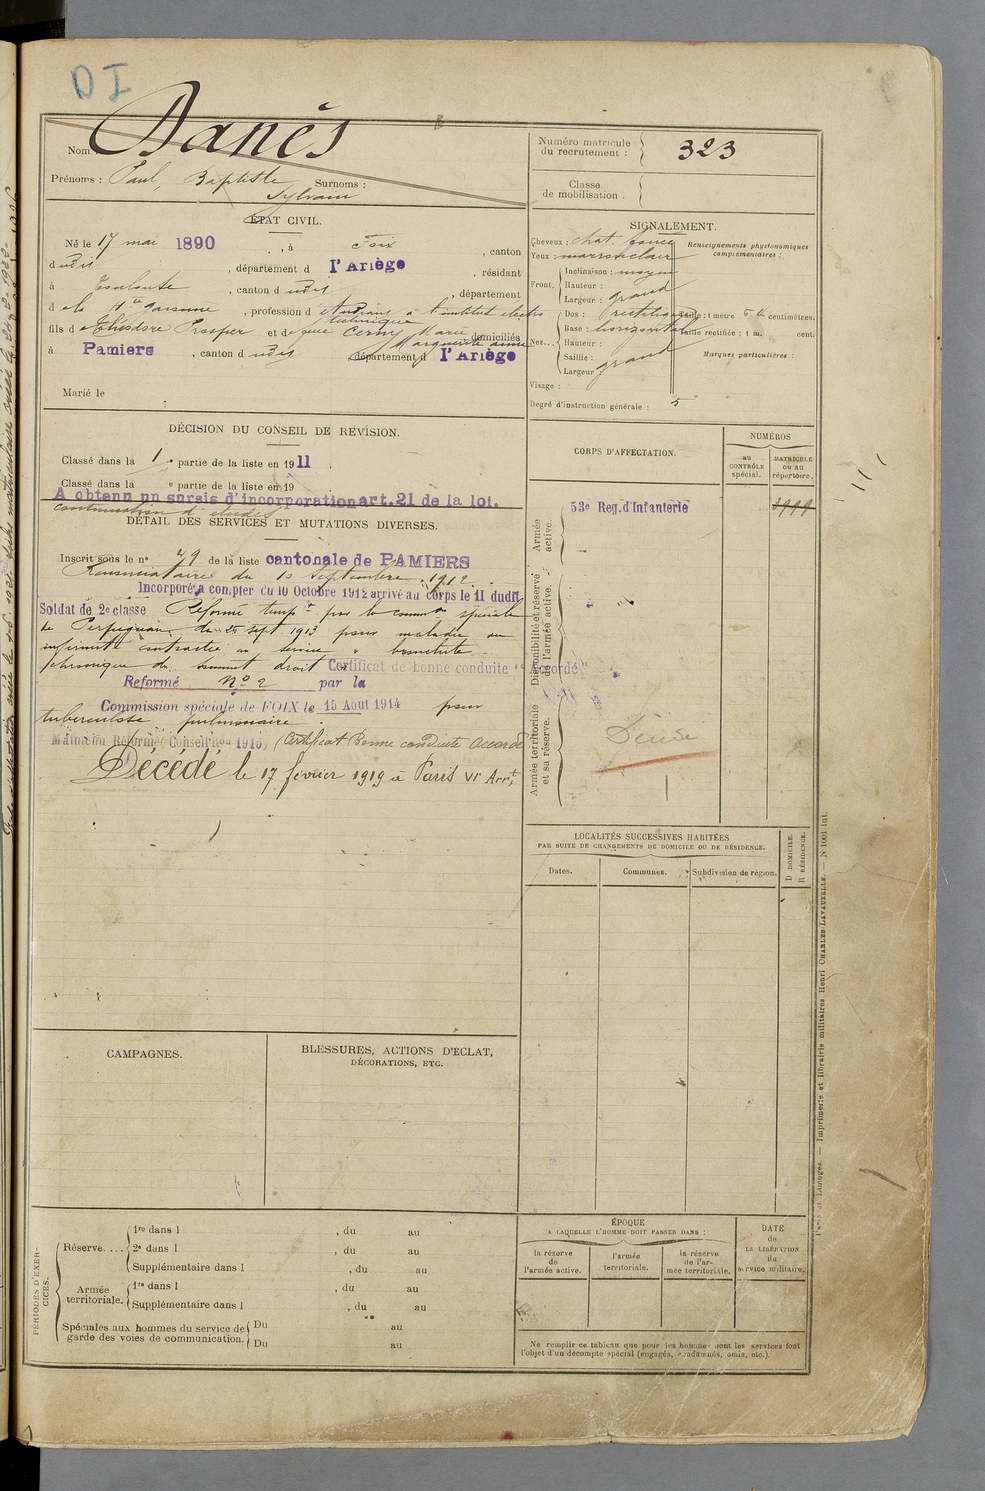 D I
Nom : Danès
Prénoms : Paul, Baptiste Surnoms :
Sylvain
Numéro matricule
du recrutement : 323
Classe
de mobilisation :
ÉTAT CIVIL.
Né le 17 mai 1890, à Foix, canton
dudit, département d l'Ariège, résidant
à Toulouse, canton dudit, département
d e la Hte Garonne, profession d étudiant à l'institut electro
technique
fils d e Théodore Prosper et de feue Cerny Marie domiciliés
Marguerite anne
à Pamiers, canton dudit département d l'Ariège
Marié le
SIGNALEMENT.
Cheveux : chat. foncé
Yeux : marron clair
Renseignements physionomiques
complémentaires :
Front. Inclinaison : moyen
Hauteur :
Largeur : grand
Nez... Dos : rectiligne
Base : horizontal
Hauteur :
Saillie :
Largeur : grand
Taille : 1 mètre 54 centimètres.
Taille rectifiée : 1 m. cent.
Marques particulières :
Visage :
Degré d'instruction générale : 5
DÉCISION DU CONSEIL DE REVISION.
Classé dans la 1e partie de la liste en 1911.
Classé dans la e partie de la liste en 19
A obtenu un sursis d'incorporation art. 21 de la loi.
continuation d'études
DÉTAIL DES SERVICES ET MUTATIONS DIVERSES.
Inscrit sous le no 79 de la liste cantonale de PAMIERS
du 10 septembre 1912
Incorporé à compter du 10 Octobre 1912 arrivé au corps le 11 dudit
Soldat de 2e classe Réformé tempre par la common spéciale
de Perpignan du 25 sept 1913 pour maladie ou
infirmité contractée au service « bronchite
chronique du sommet droit » Certificat de bonne conduite "Accordé"
Reformé No 2 par la
Commission spéciale de FOIX le 15 Aout 1914 pour
tuberculose pulmonaire.
Maintenu Réformé (Conseil Ron 1915) (Certificat Bonne conduite accordé
Décédé le 17 février 1919 à Paris VI Arrt
CORPS D'AFFECTATION.
NUMÉROS
au
CONTRÔLE
spécial.
MATRICULE
ou au
répertoire.
Armée
active.
53e Reg. d'Infanterie
3999
Disponibilité et réserve
de l'armée active.
Armée territoriale
et sa réserve.
LOCALITÉS SUCCESSIVES HABITÉES
PAR SUITE DE CHANGEMENTS DE DOMICILE OU DE RÉSIDENCE.
D DOMICILE.
R RÉSIDENCE.
Dates.
Communes.
Subdivision de région.
CAMPAGNES.
BLESSURES, ACTIONS D'ÉCLAT,
DÉCORATIONS, ETC.
PÉRIODES D'EXER-
CICES.
Réserve....
1re dans l , du au
2e dans l , du au
Supplémentaire dans l , du au
Armée
territoriale.
1re dans l , du au
Supplémentaire dans l , du au
Spéciales aux hommes du service de
garde des voies de communication.
Du au
Du au
ÉPOQUE
A LAQUELLE L'HOMME DOIT PASSER DANS :
la réserve
de
l'armée active.
l'armée
territoriale.
la réserve
de l'ar-
mée territoriale.
DATE
de
LA LIBÉRATION
du
service militaire.
Ne remplir ce tableau que pour les hommes dont les services font
l'objet d'un décompte spécial (engagés, condamnés, omis, etc.).
Paris et Limoges. — Imprimerie et librairie militaires Henri CHARLES-LAVAUZELLE. — N 1001 int.